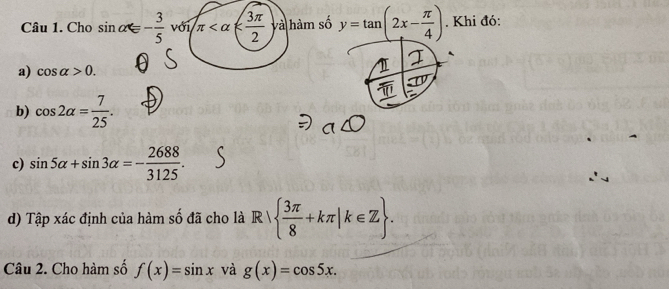 Câu 1. Cho sin α = -3/5 với π < α < 3π/2 và hàm số y = tan(2x - π/4). Khi đó:
a) cos α > 0. Đ S
II I
III IV
b) cos 2α = 7/25. Đ
⇒ a<0
c) sin 5α + sin 3α = -2688/3125. S
d) Tập xác định của hàm số đã cho là ℝ \ {3π/8 + kπ | k ∈ ℤ}.
Câu 2. Cho hàm số f(x) = sin x và g(x) = cos 5x.